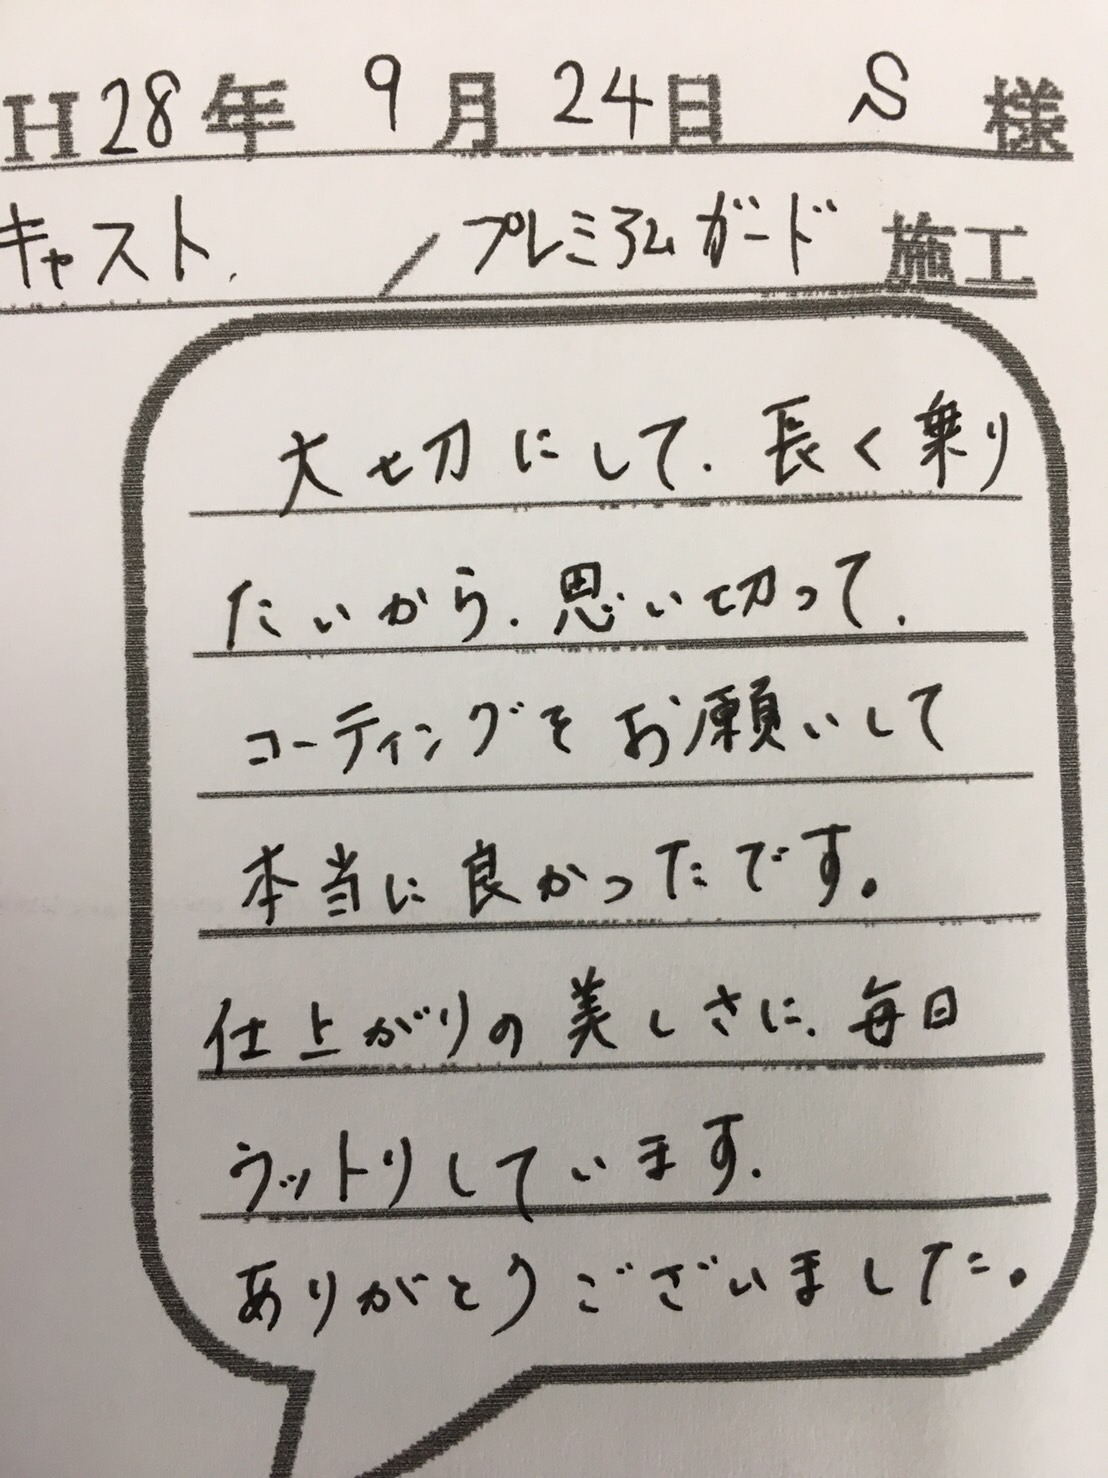 H28年 9月24日 S 様
キャスト. / プレミアムガード 施工
大切にして、長く乗り
たいから、思い切って、
コーティングをお願いして
本当に良かったです。
仕上がりの美しさに、毎日
ウットリしています。
ありがとうございました。